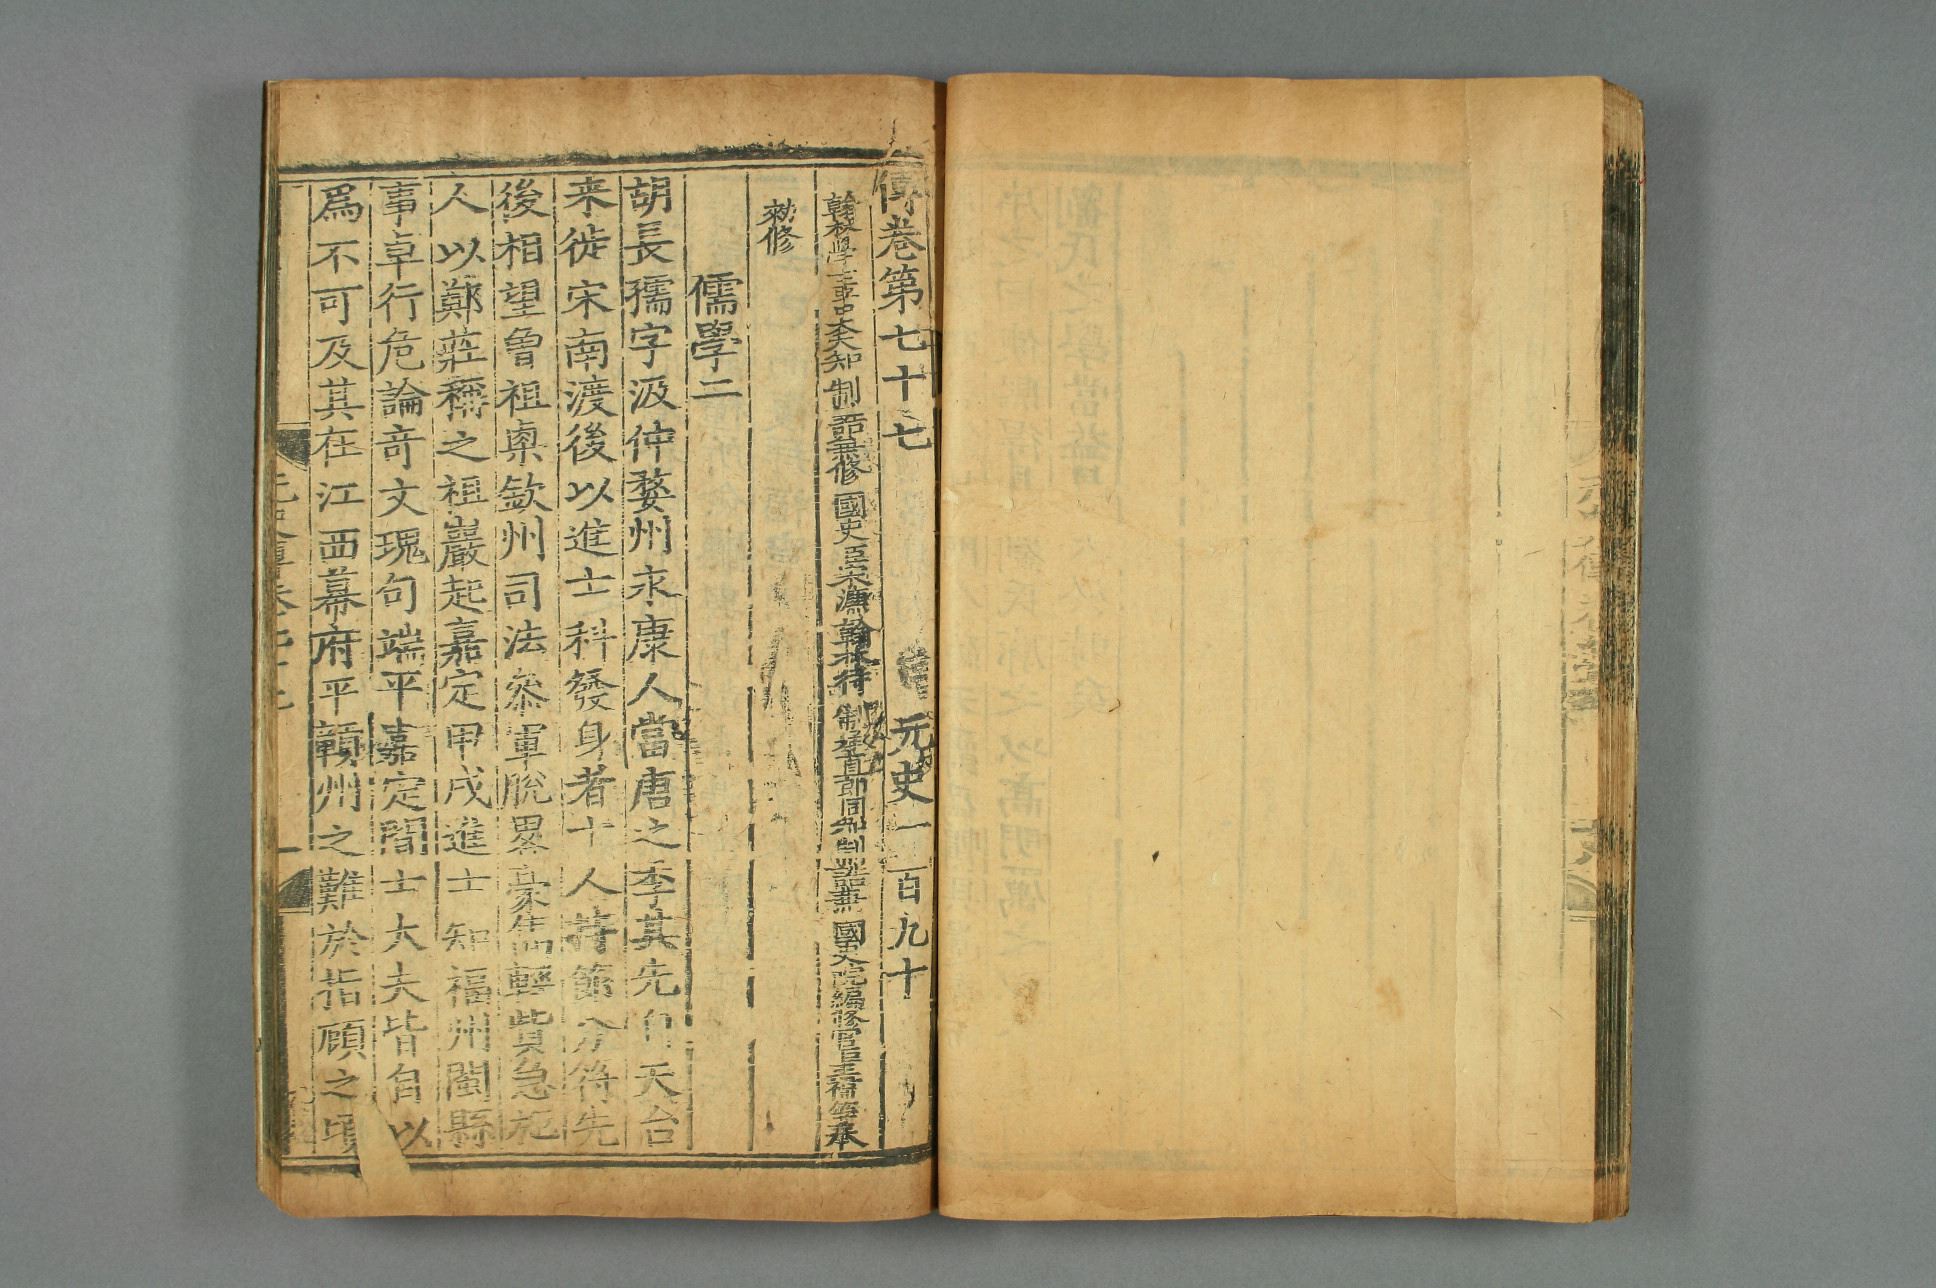 傳卷第七十七 元史一百九十
翰林學士亞中大夫知制誥兼修國史臣宋濂翰林待制承直郎同知制誥兼國史院編修官臣王禕等奉
勑修
儒學二
胡長孺字汲仲婺州永康人當唐之季其先自天台
来徙宋南渡後以進士科發身者十人持節分符先
後相望曾祖㮚欽州司法參軍脫畧豪雋輕貲急施
人以鄭莊稱之祖巖起嘉定甲戌進士知福州閩縣
事卓行危論竒文瑰句端平嘉定間士大夫皆自以
爲不可及其在江西幕府平贛州之難於指顧之頃